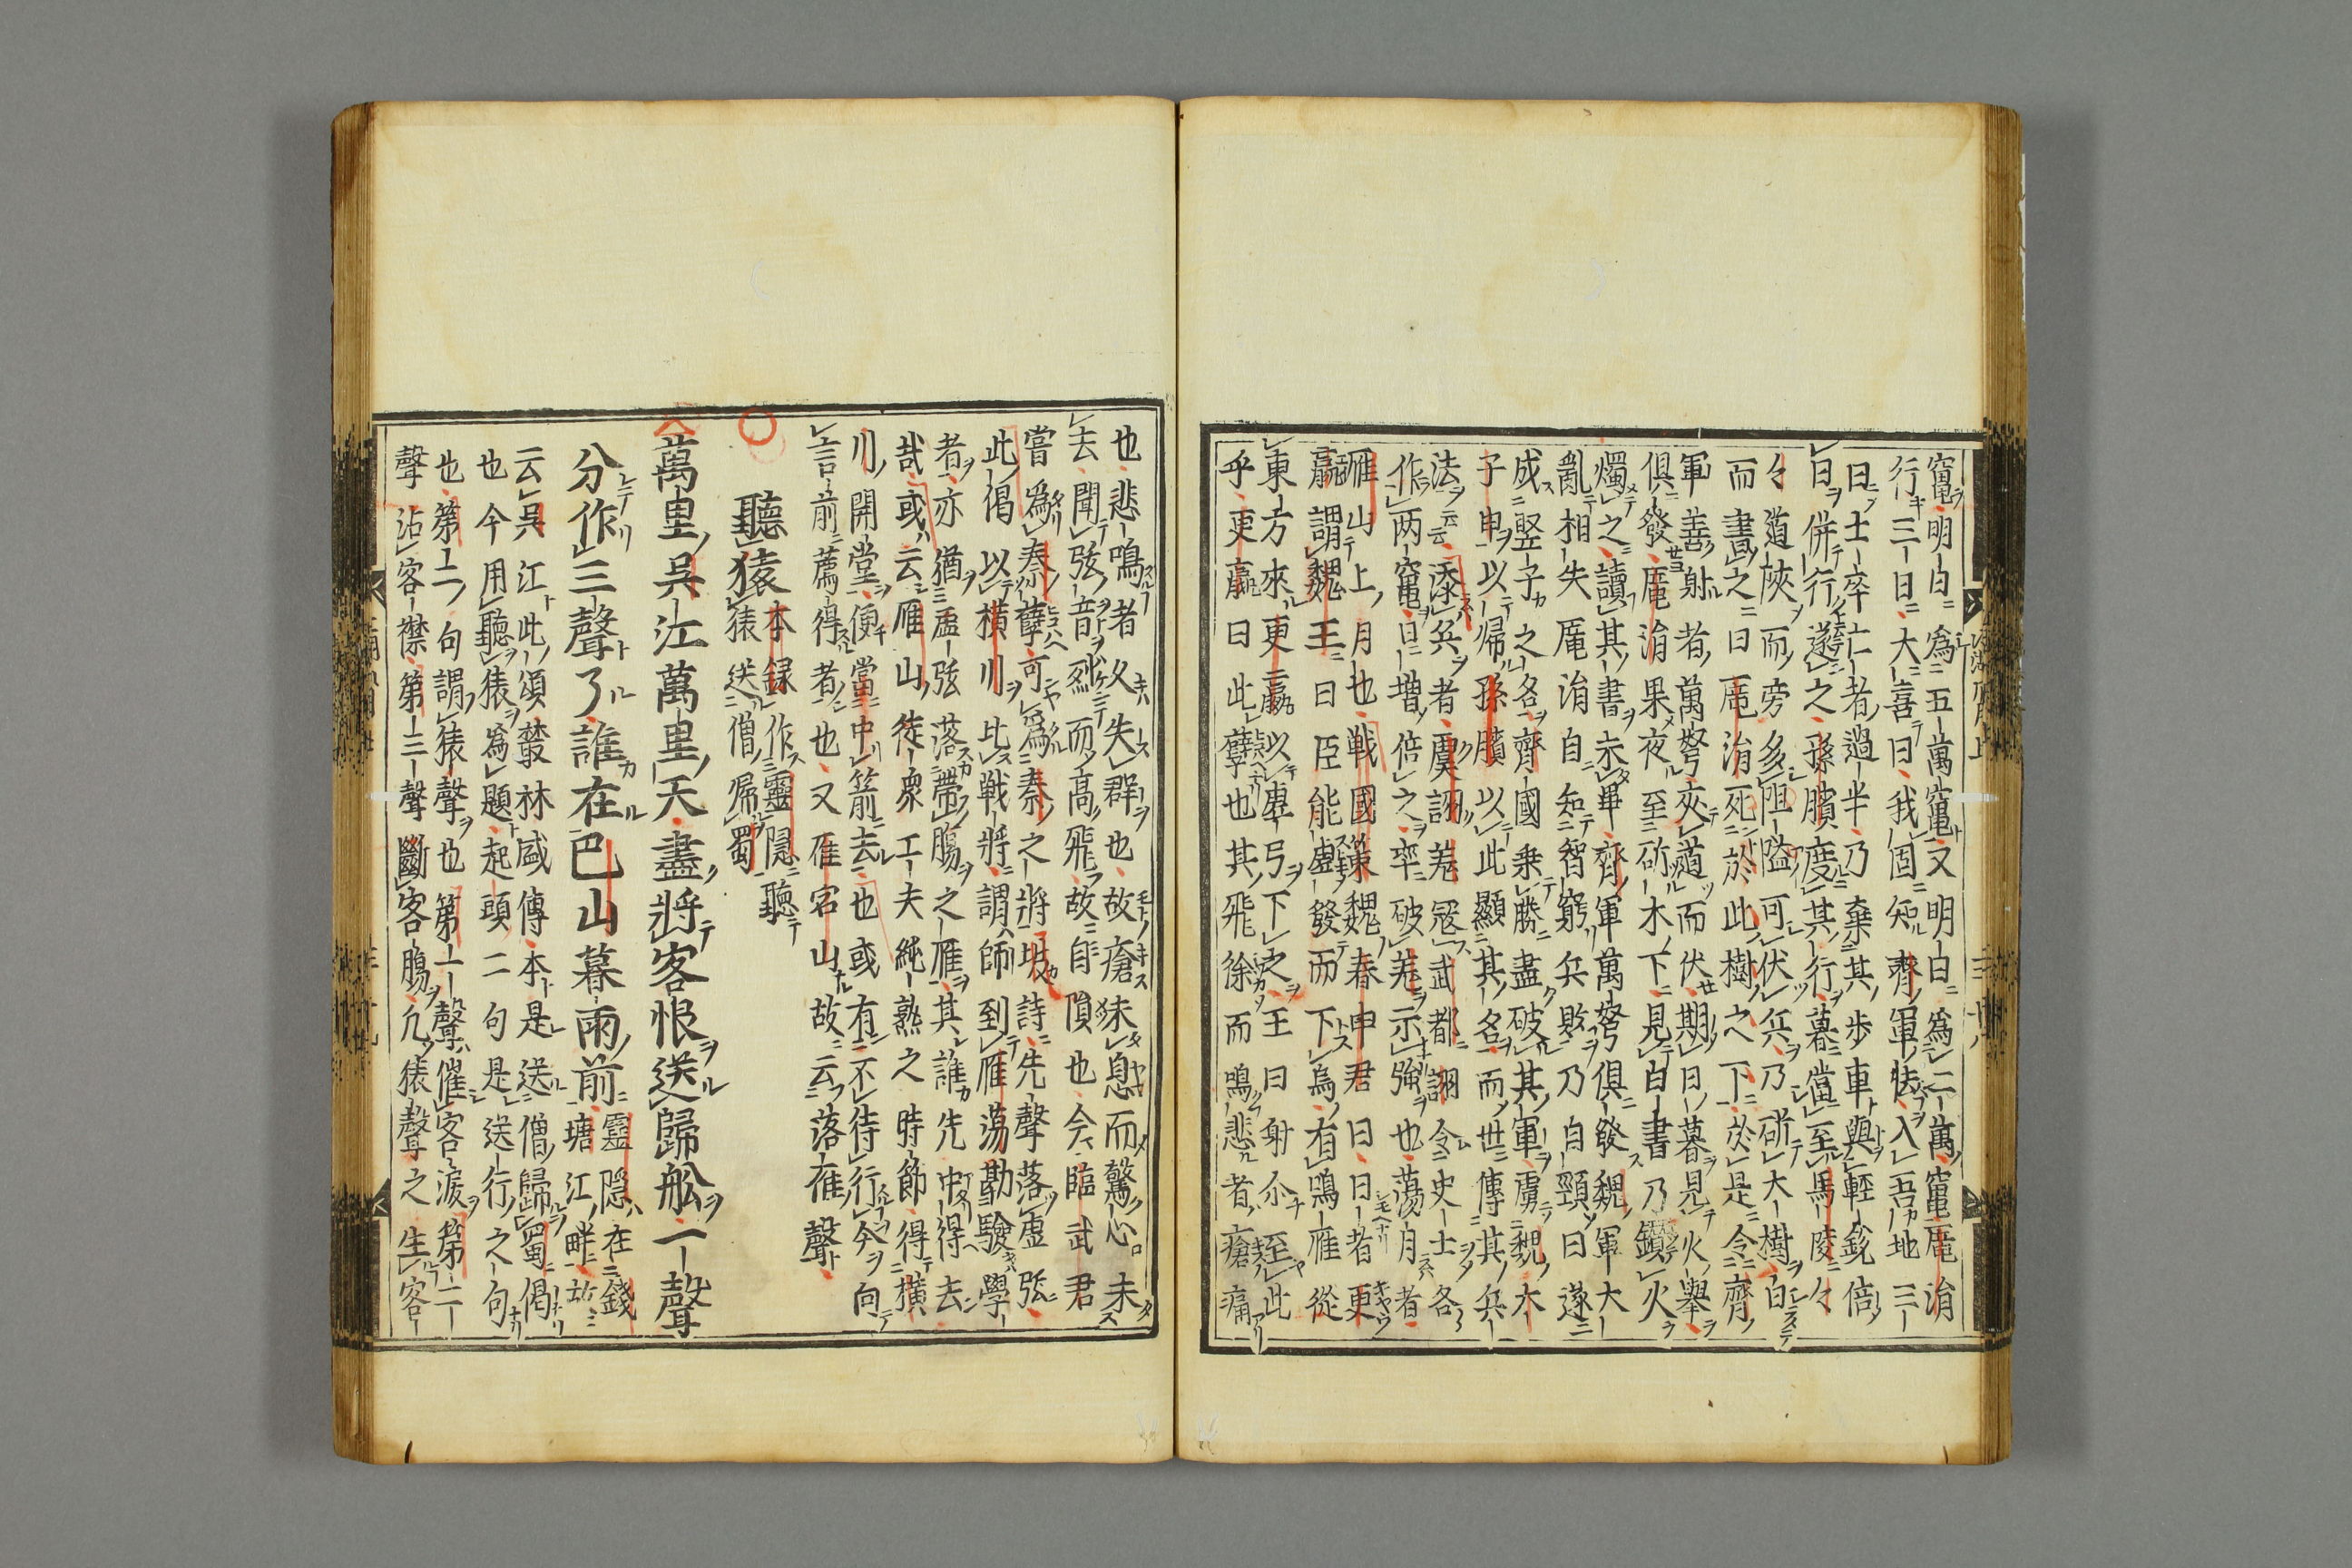 竃明日為五萬竃又明日為二萬竃龐涓
行三日大喜曰我固知齊軍怯入吾地三
日士卒亡者過半乃棄其歩車與輕鋭倍
日併行遂之孫臏度其行暮當至馬陵々
々道陜而旁多阻隘可伏兵乃斫大樹白
而書之曰龐涓死於此樹之下於是令齊
軍善射者萬弩夾道而伏期曰暮見火擧
倶發龐涓果夜至斫木下見白書乃鑚火
燭之讀其書未畢齊軍萬弩倶發魏軍大
亂相失龐涓自知智窮兵敗乃自頸曰遂
成竪子之名齊國乗勝盡破其軍虜魏太
子申以帰孫臏以此顯其名而世傳其兵
法云添兵者虞詡羌寇武都詡令吏士各
作両竃日増倍之卒破羌示強也蕩月者
雁山上月也戦國策魏春申君曰日者更
羸謂魏王曰臣能虚發而下為有鳴雁従
東方來更羸以虚弓下之王曰射尒至此
乎更羸曰此孽也其飛徐而鳴悲者瘡痛
也悲鳴者久失群也故瘡未息而驚心未
去聞弦音烈而高飛故自隕也今臨武君
嘗為秦孽可為秦之將哉詩先聲落虚弦
此偈以横川比戦將謂師到雁蕩勘驗學
者亦猶虚弦落帶膓之雁其誰先中得去
哉或云雁山徒衆工夫純熟之時節得横
川開堂便當中箭去也或有不待行令向
言前薦得者也又雁宕山故云落雁聲
聽猿 本録作靈隠聽
猿送僧帰蜀
萬里呉江萬里天盡將客恨送歸舩一聲
分作三聲了誰在巴山暮雨前 靈隠在錢
塘江畔故
云呉江此頌叢林盛傳本是送僧歸蜀偈
也今用聽猿為題起頭二句是送行之句
也第二句謂猿聲也第一聲催客涙第二
聲沾客襟第三聲斷客膓凢猿聲之生客